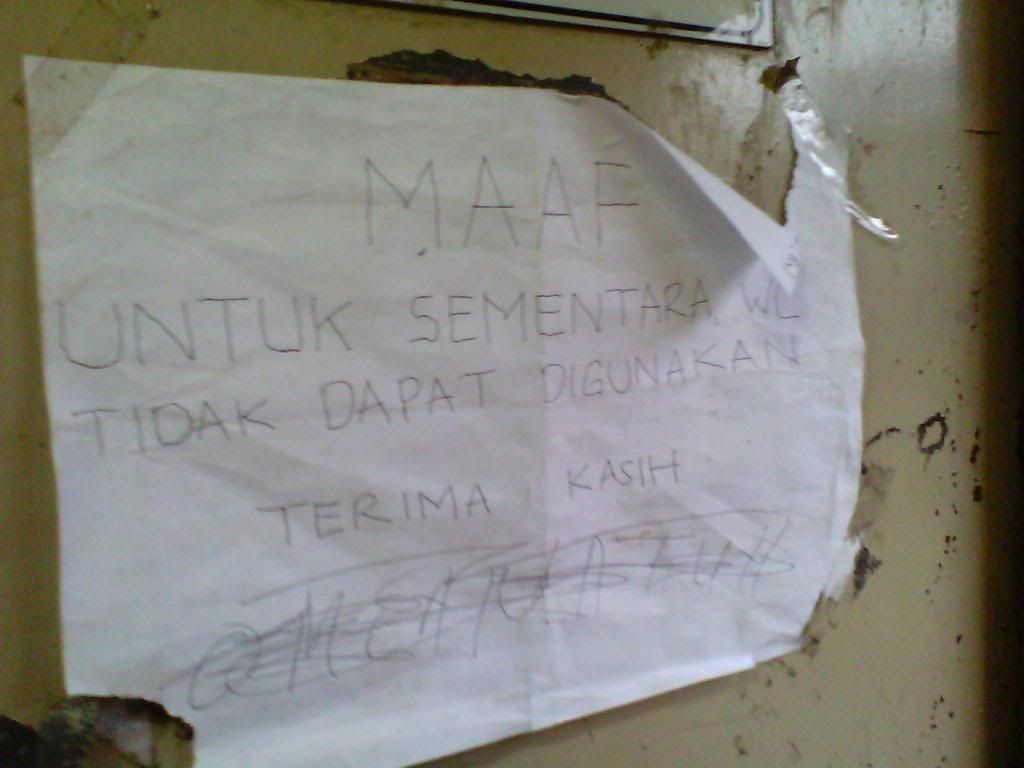 MAAF
UNTUK SEMENTARA WC
TIDAK DAPAT DIGUNAKAN
TERIMA KASIH